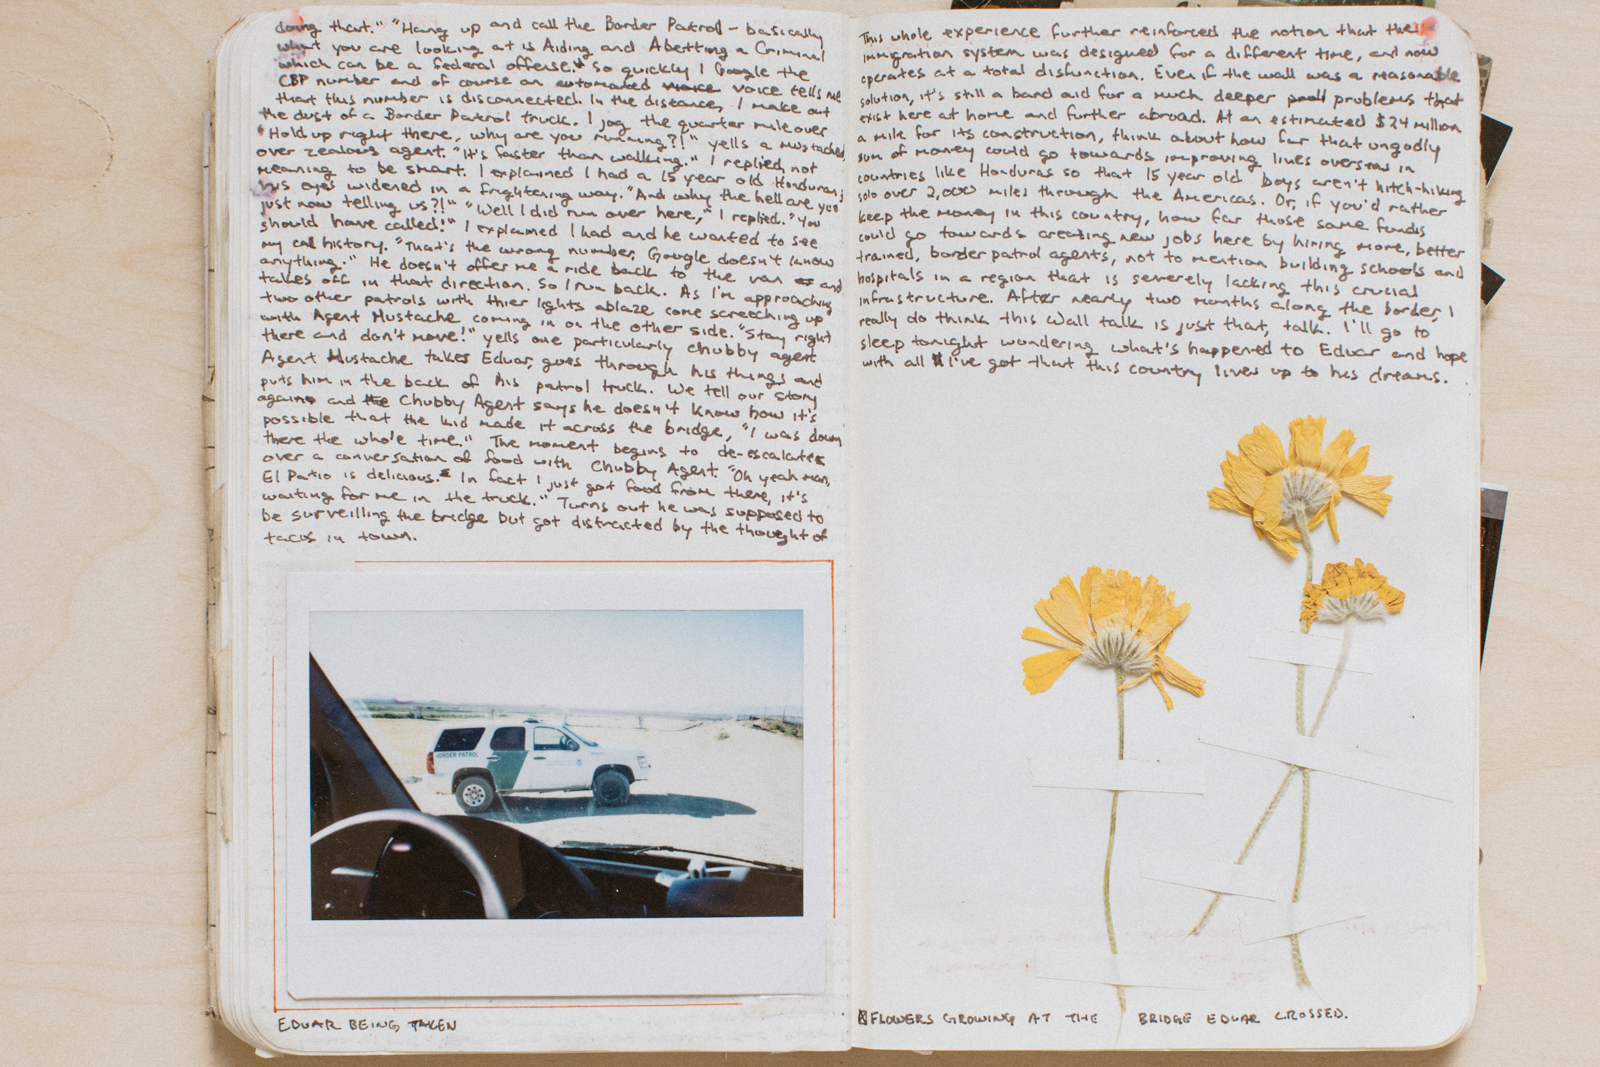 doing that." "Hang up and call the Border Patrol - basically
what you are looking at is Aiding and Abetting a Criminal
which can be a federal offense." So quickly I Google the
CBP number and of course an automated voice voice tells me
that this number is disconnected. In the distance, I make out
the dust of a Border Patrol truck. I jog the quarter mile over.
"Hold up right there, why are you running?!" yells a mustached
over zealous agent. "It's faster than walking." I replied, not
meaning to be smart. I explained I had a 15 year old Honduran;
his eyes widened in a frightening way. "And why the hell are you
just now telling us?!" "Well I did run over here," I replied. "You
should have called!" I explained I had and he wanted to see
my call history. "That's the wrong number, Google doesn't know
anything." He doesn't offer me a ride back to the van and
takes off in that direction. So I run back. As I'm approaching
two other patrols with thier lights ablaze come screeching up
with Agent Mustache coming in on the other side. "Stay right
there and don't move!" yells one particularly chubby agent
Agent Mustache takes Eduar, goes through his things and
puts him in the back of his patrol truck. We tell our story
again and the Chubby Agent says he doesn't know how it's
possible that the kid made it across the bridge, "I was down
there the whole time." The moment begins to de-escalate
over a conversation of food with Chubby Agent. "Oh yeah man,
El Patio is delicious. In fact I just got food from there, it's
waiting for me in the truck." Turns out he was supposed to
be surveilling the bridge but got distracted by the thought of
tacos in town.
BORDER PATROL
EDUAR BEING TAKEN
This whole experience further reinforced the notion that the
immigration system was designed for a different time, and now
operates at a total disfunction. Even if the wall was a reasonable
solution, it's still a band aid for a much deeper problems that
exist here at home and further abroad. At an estimated $24 million
a mile for its construction, think about how far that ungodly
sum of money could go towards improving lives overseas in
countries like Honduras so that 15 year old boys aren't hitch-hiking
solo over 2,000 miles through the Americas. Or, if you'd rather
keep the money in this country, how far those same funds
could go towards creating new jobs here by hiring more, better
trained, border patrol agents, not to mention building schools and
hospitals in a region that is severely lacking this crucial
infrastructure. After nearly two months along the border, I
really do think this Wall talk is just that, talk. I'll go to
sleep tonight wondering what's happened to Eduar and hope
with all I've got that this country lives up to his dreams.
FLOWERS GROWING AT THE BRIDGE EDUAR CROSSED.